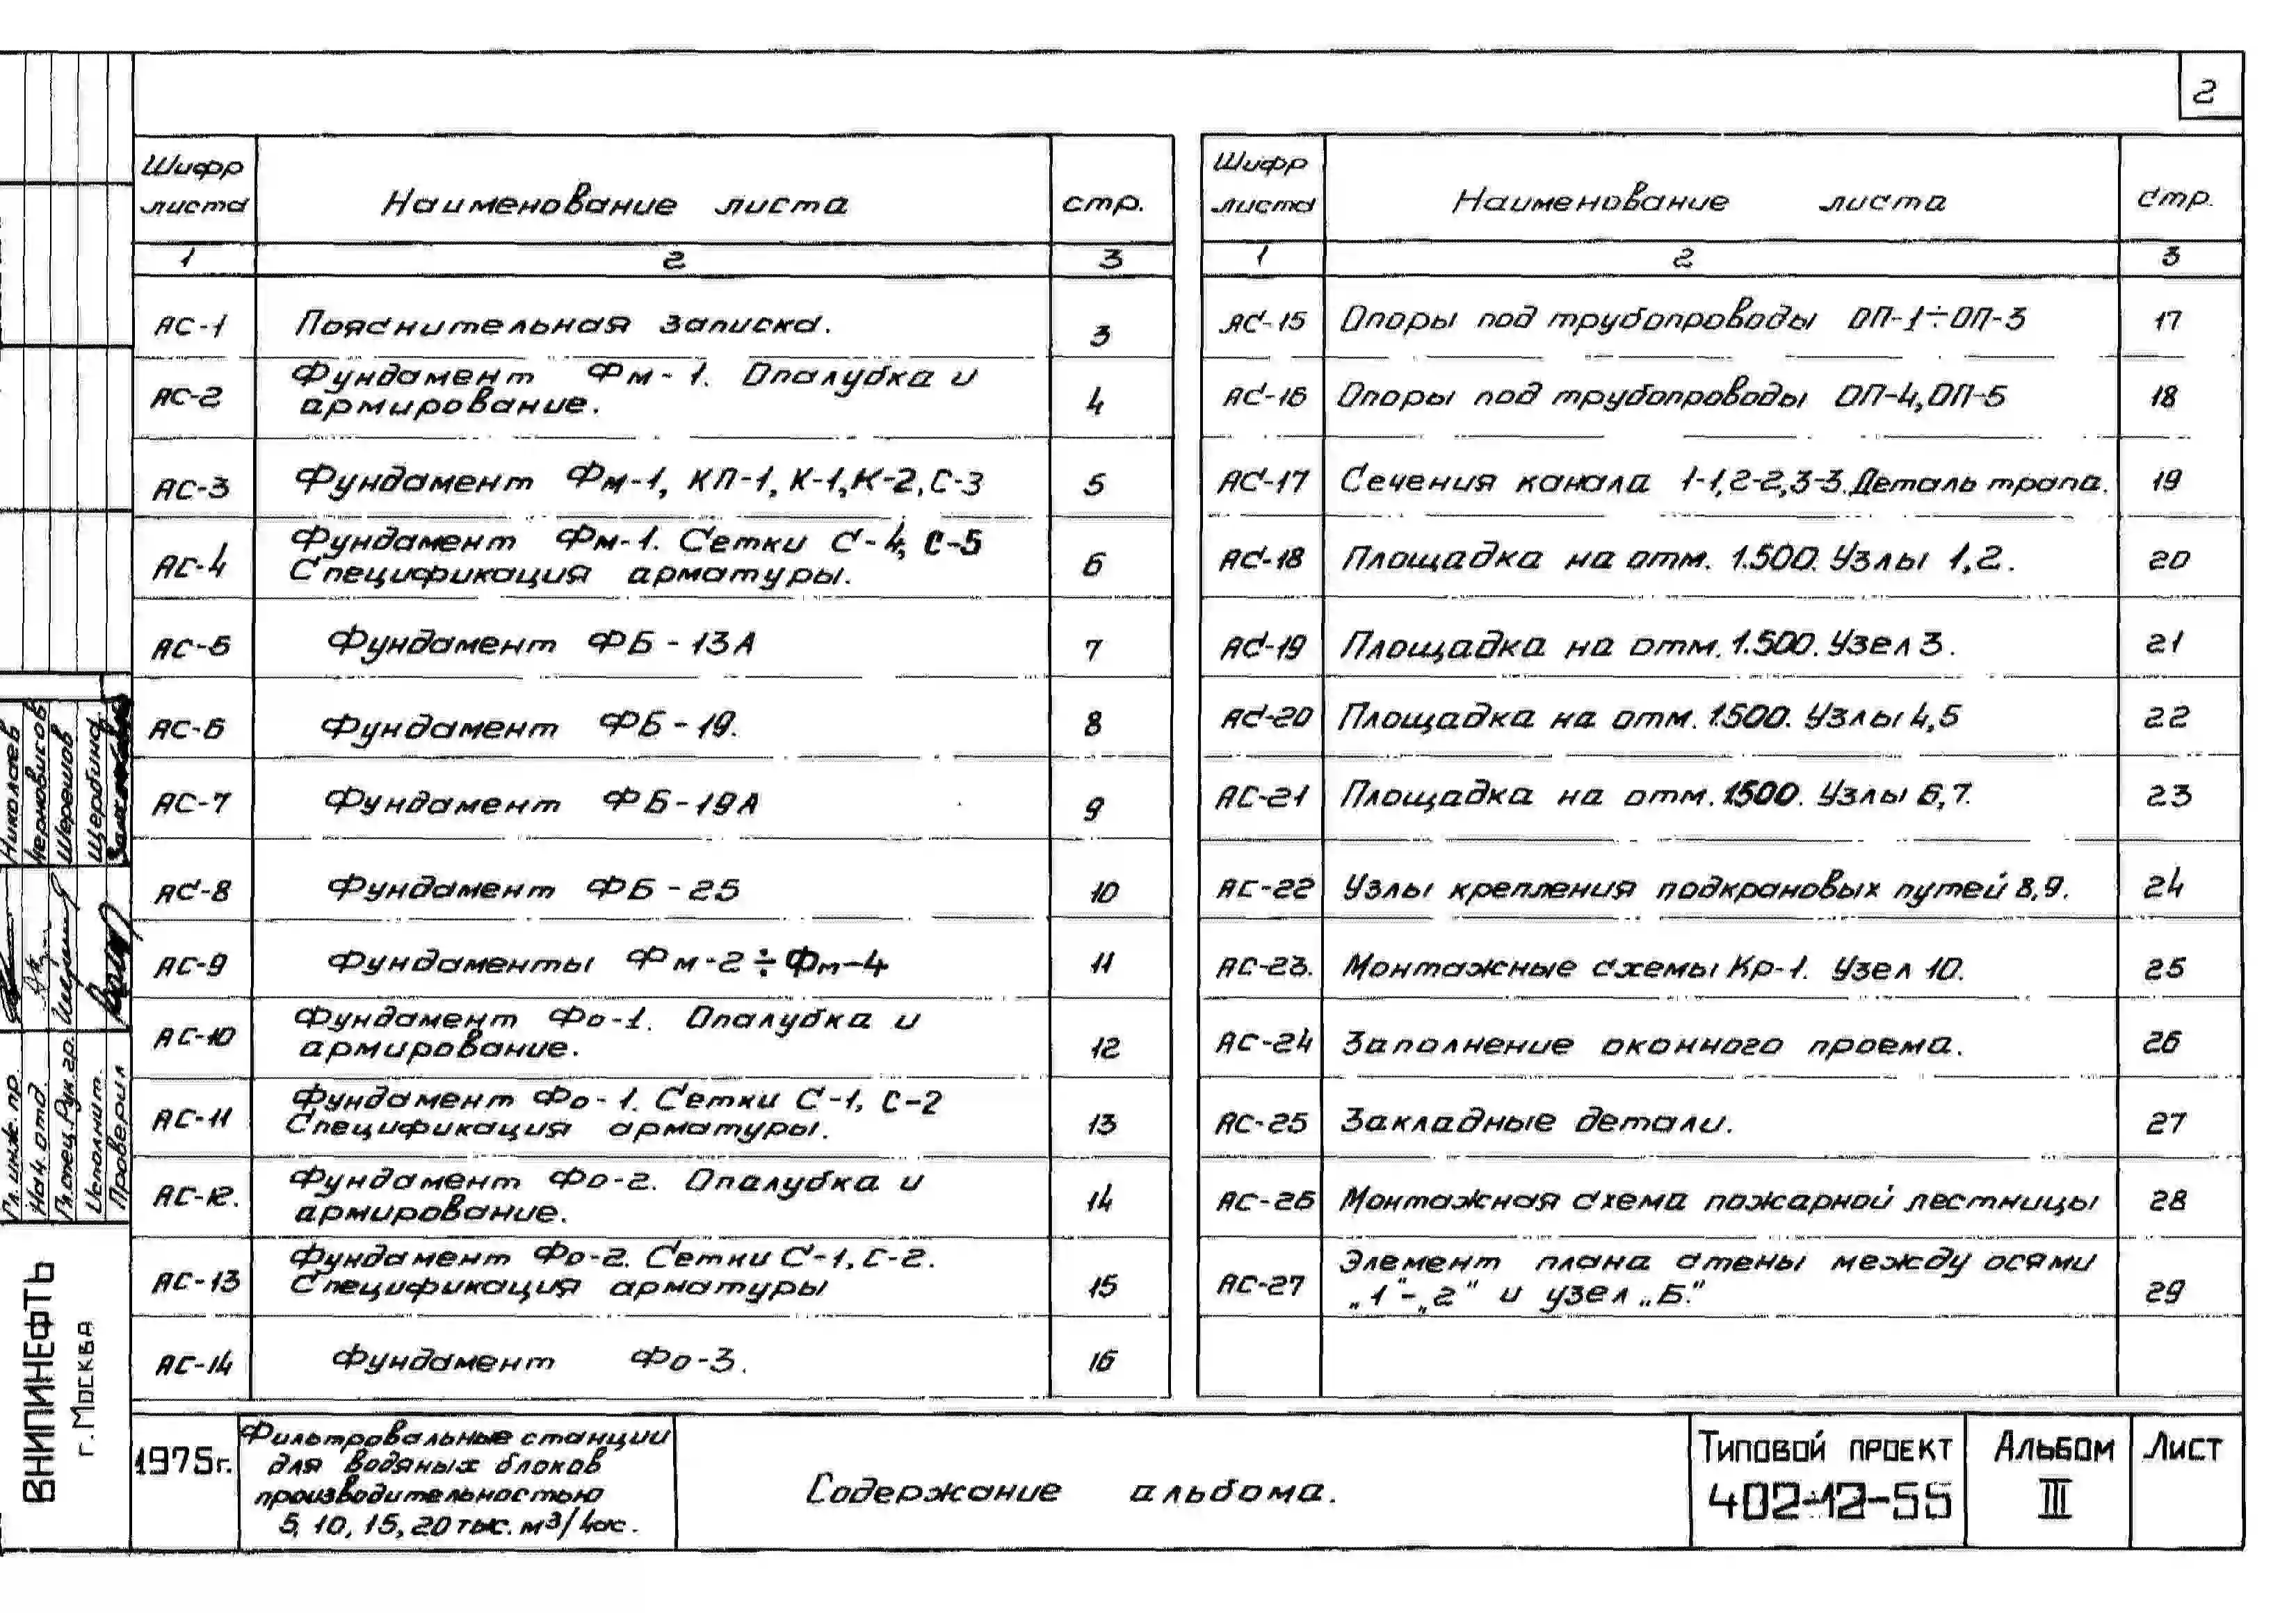 2
Шифр листа Наименование листа стр.
1 2 3
АС-1 Пояснительная записка. 3
АС-2 Фундамент Фм-1. Опалубка и
армирование. 4
АС-3 Фундамент Фм-1, КП-1, К-1, К-2, С-3 5
АС-4 Фундамент Фм-1. Сетки С-4, С-5
Спецификация арматуры. 6
АС-5 Фундамент ФБ-13А 7
АС-6 Фундамент ФБ-19. 8
АС-7 Фундамент ФБ-19А 9
АС-8 Фундамент ФБ-25 10
АС-9 Фундаменты Фм-2÷Фм-4 11
АС-10 Фундамент Фо-1. Опалубка и
армирование. 12
АС-11 Фундамент Фо-1. Сетки С-1, С-2
Спецификация арматуры. 13
АС-12. Фундамент Фо-2. Опалубка и
армирование. 14
АС-13 Фундамент Фо-2. Сетки С-1, С-2.
Спецификация арматуры 15
АС-14 Фундамент Фо-3. 16
Шифр листа Наименование листа стр.
1 2 3
АС-15 Опоры под трубопроводы ОП-1÷ОП-3 17
АС-16 Опоры под трубопроводы ОП-4, ОП-5 18
АС-17 Сечения канала 1-1, 2-2, 3-3. Деталь трапа. 19
АС-18 Площадка на отм. 1.500. Узлы 1, 2. 20
АС-19 Площадка на отм. 1.500. Узел 3. 21
АС-20 Площадка на отм. 1.500. Узлы 4, 5 22
АС-21 Площадка на отм. 1.500. Узлы 6, 7. 23
АС-22 Узлы крепления подкрановых путей 8, 9. 24
АС-23. Монтажные схемы Кр-1. Узел 10. 25
АС-24 Заполнение оконного проема. 26
АС-25 Закладные детали. 27
АС-26 Монтажная схема пожарной лестницы 28
АС-27 Элемент плана стены между осями
„1"-„2" и узел „Б." 29
Гл. инж. пр. Николаев
Нач. отд. Черновисов
Гл. спец. Рук. гр. Шерешов
Исполнит. Щербина
Проверил
ВНИПИНЕФТЬ
г. Москва
1975г.
Фильтровальные станции
для водяных блоков
производительностью
5, 10, 15, 20 тыс. м³/час.
Содержание альбома.
Типовой проект
402-12-55
Альбом
III
Лист